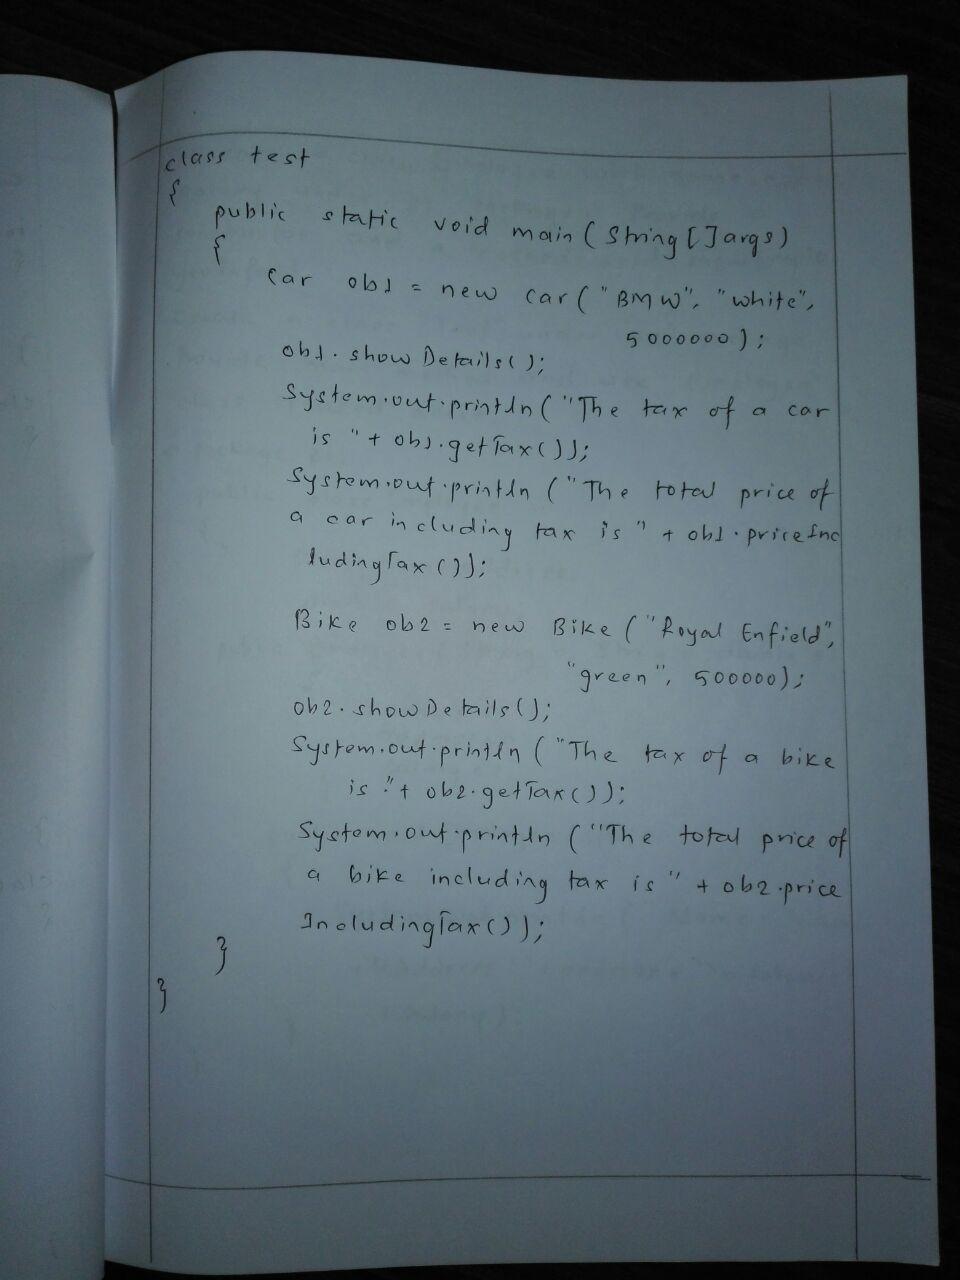 class test
{
public static void main (String [] args)
{
Car ob1 = new Car ("BMW", "white",
5000000);
ob1.showDetails();
System.out.println ("The tax of a car
is "+ ob1.getTax());
System.out.println ("The total price of
a car including tax is " + ob1.priceInc
ludingTax());
Bike ob2 = new Bike ("Royal Enfield",
"green", 500000);
ob2.showDetails();
System.out.println ("The tax of a bike
is "+ ob2.getTax());
System.out.println ("The total price of
a bike including tax is " + ob2.price
IncludingTax());
}
}